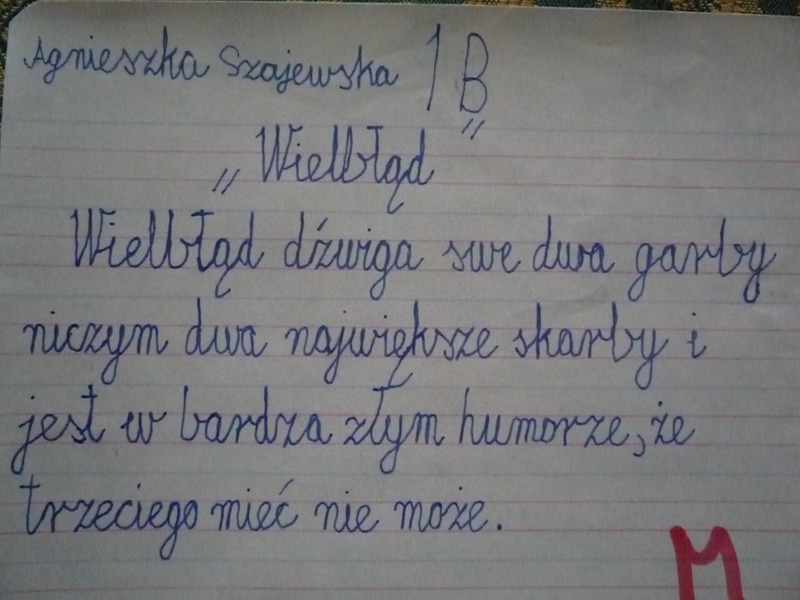 Agnieszka Szajewska 1 B
„Wielbłąd"
Wielbłąd dźwiga swe dwa garby
niczym dwa największe skarby i
jest w bardza złym humorze, że
trzeciego mieć nie może.
M